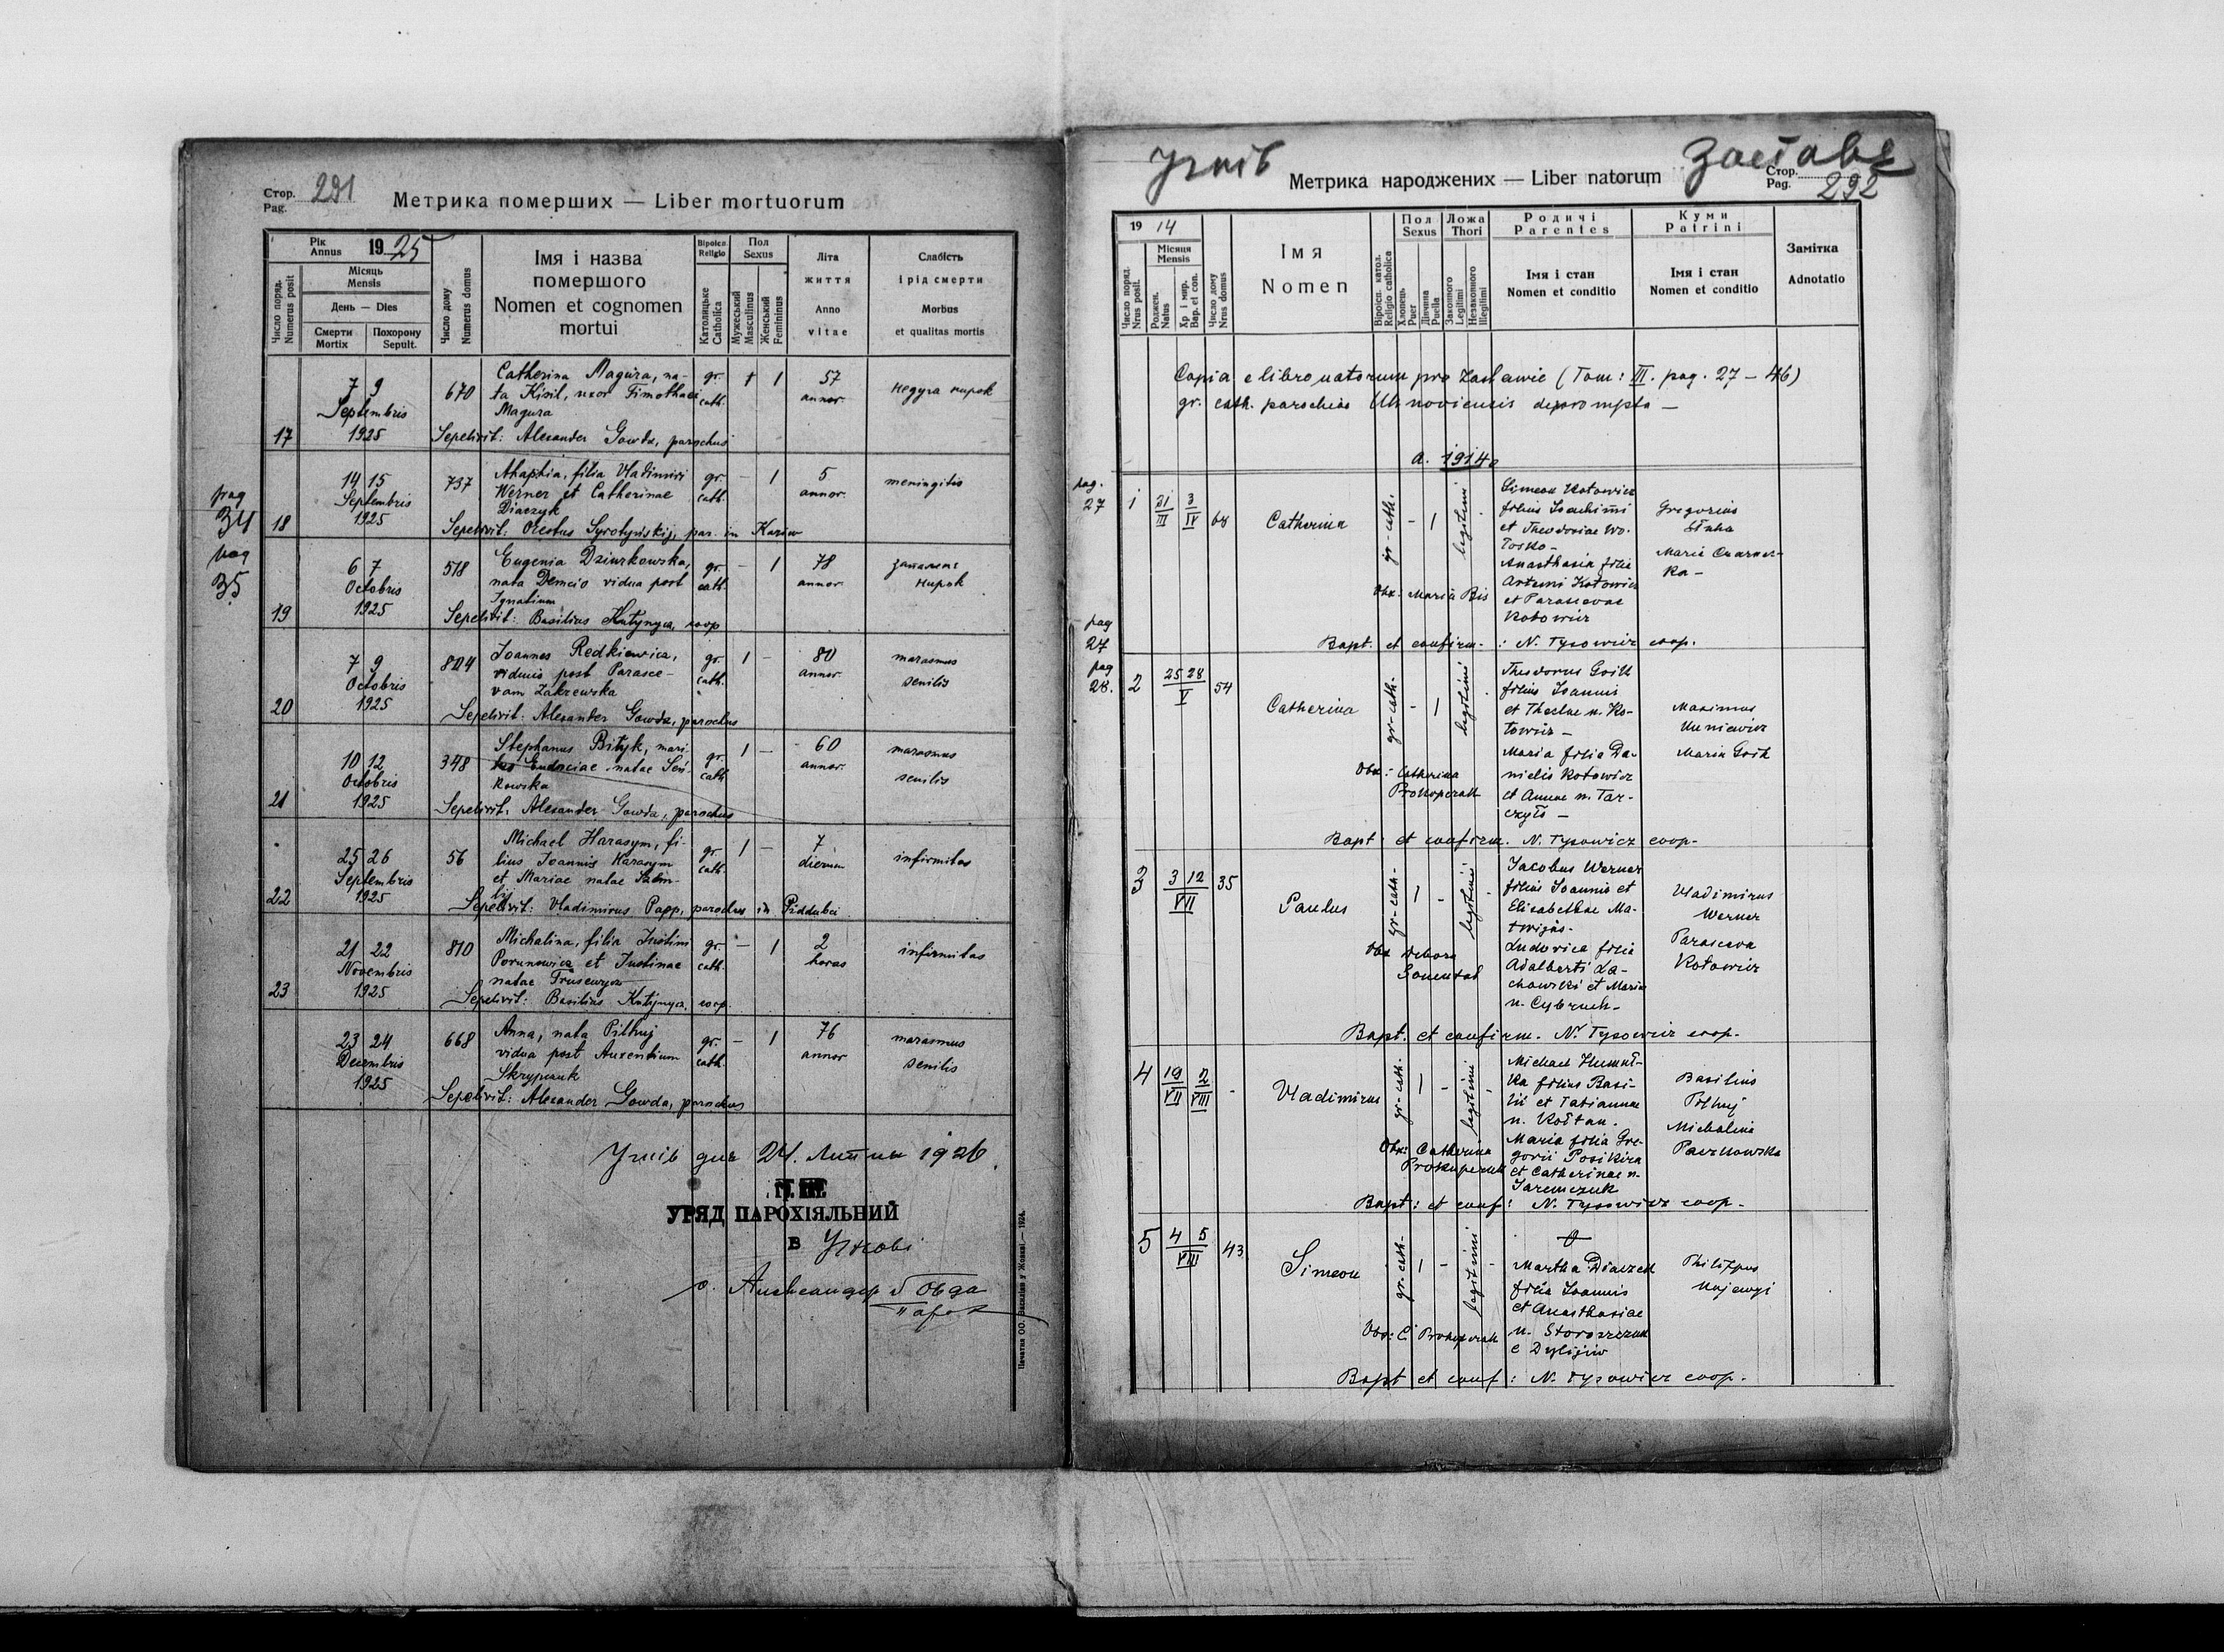 Стор. Pag. 291
Метрика померших — Liber mortuorum
Рік Annus 1925
Число поряд. Numerus posit
Місяць Mensis
День — Dies
Смерти Mortix
Похорону Sepult.
Число дому Numerus domus
Імя і назва
померш­ого
Nomen et cognomen
mortui
Віроісп. Religio
Католицьке Catholica
Пол Sexus
Мужеський Masculinus
Женський Femininus
Літа
життя
Anno
vitae
Слабість
і рід смерти
Morbus
et qualitas mortis
17
7 9 Septembris 1925
670
Catherina Magura, na-
ta Kisil, uxor Timothaei
Magura
gr. cath.
1
57 annor.
недуга нирок
Sepelivit: Alexander Gowda, parochus
pag 34
18
14 15 Septembris 1925
737
Ahaphia, filia Vladimiri
Werner et Catherinae
Diaczyk
gr. cath.
— 1
5 annor.
meningitis
Sepelivit: Orestus Syrotyńskij, par. in Karów
pag 35
19
6 7 Octobris 1925
518
Eugenia Dziurkowska,
nata Demcio vidua post
Ignatium
gr. cath.
— 1
78 annor.
запалене
нирок
Sepelivit: Basilius Kutynyca, coop
20
7 9 Octobris 1925
804
Joannes Redkiewicz,
viduus post Parasce-
vam Zakrzewska
gr. cath.
1 —
80 annor.
marasmus
senilis
Sepelivit: Alexander Gowda, parochus
21
10 12 Octobris 1925
348
Stephanus Bityk, mari-
tus Eudociae natae Seń-
kowska
gr. cath
1 —
60 annor.
marasmus
senilis
Sepelivit: Alexander Gowda, parochus
22
25 26 Septembris 1925
56
Michael Harasym, fi-
lius Joannis Harasym
et Mariae natae
gr. cath.
1 —
7 dierum
infirmitas
Sepelivit: Vladimirus Papp, parochus in Piddubci
23
21 22 Novembris 1925
810
Michalina, filia Justini
Porunowicz et Justinae
natae Trusewycz
gr. cath.
— 1
2 horas
infirmitas
Sepelivit: Basilius Kutynyca, coop.
23 24 Decembris 1925
668
Anna, nata Pilhuj
vidua post Auxentium
Skrypczuk
gr. cath.
— 1
76 annor
marasmus
senilis
Sepelivit: Alexander Gowda, parochus
Угнів дня 24. Липня 1926.
УРЯД ПАРОХІЯЛЬНИЙ
в Угнові
о. Александер Говда
парох
Печатня ОО. Василіян у Жовкві. — 1924.
Угнів
Заставе
Метрика народжених — Liber natorum
Стор. Pag. 292
1914
Число поряд. Nrus posit.
Місяця Mensis
Рожден. Natus
Хр. і мир. Bap. et con.
Число дому Nrus domus
Імя
Nomen
Віроісп. катол. Religio catholica
Пол Sexus
Хлопець Puer
Дівчина Puella
Ложа Thori
Законного Legitimi
Незаконного Illegitimi
Родичі
Parentes
Імя і стан
Nomen et conditio
Куми
Patrini
Імя і стан
Nomen et conditio
Замітка
Adnotatio
Copia e libro natorum pro Zastawie (Tom: III. pag. 27 — 46)
gr. cath. parochiae Uhnoviensis deprompta —
a. 1914.
pag. 27
1
21 III 3 IV
68
Catherina
gr-cath.
- 1
legitimi
Simeon Kotowicz
filius Joachimi
et Theodosiae Wo-
Anasthasia filia
Artemi Kotowicz
et Parascevae
Kotowicz
Gregorius
Maria Czarnec-
ka -
Obs: Maria Bis
Bapt. et confirm. : N. Tysowicz coop.
pag 27
pag 28.
2
25 28 V
54
Catherina
gr-cath.
- 1
legitimi
Theodorus Goik
filius Joannis
et Theclae n. Ko-
towicz -
Maria filia Da-
nielis Kotowicz
et Annae n. Tar-
czyło -
Maximus
Maria Goik
Obs: Catherina
Prokopczuk
Bapt. et confirm. N. Tysowicz coop.
3
3 12 VII
35
Paulus
gr-cath-
1 -
legitimi
Jacobus Werner
filius Joannis et
Elisabethae Ma-
twijas-
Ludovica filia
Adalberti La-
chowski et Maria
n. Cybruch-
Vladimirus
Werner
Parasceva
Kotowicz
Obs Debora
Bapt. et confirm. N. Tysowicz coop.
4
19 VII 2 VIII
-
Vladimirus
gr-cath.
1 -
legitimi
Michael Humni-
ka filius Basi-
lii et Tatiannae
n. Kołtan.
Maria filia Gre-
gorii Posikira
et Catherinae n.
Jaremczuk
Basilius
Pilhuj
Michalina
Obs: Catherina
Prokopczuk
Bapt: et conf: N. Tysowicz coop.
5
4 5 VIII
43
Simeon
gr-cath-
1 -
legitimi
Martha Diaczek
filia Joannis
et Anasthasiae
n. Storoszczuk
e Dyliźiw
Philippus
Obs: C. Prokopczuk
Bapt et conf: N. Tysowicz coop.